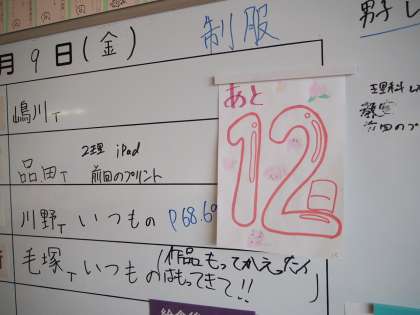 月9日(金)
制服
嶋川T
品田T
2理 iPad
前回のプリント
川野T いつもの P68.69
毛塚T いつもの
(作品もってかえったイ
はもってきて!!)
あと
12
男子
理科
前回のプ